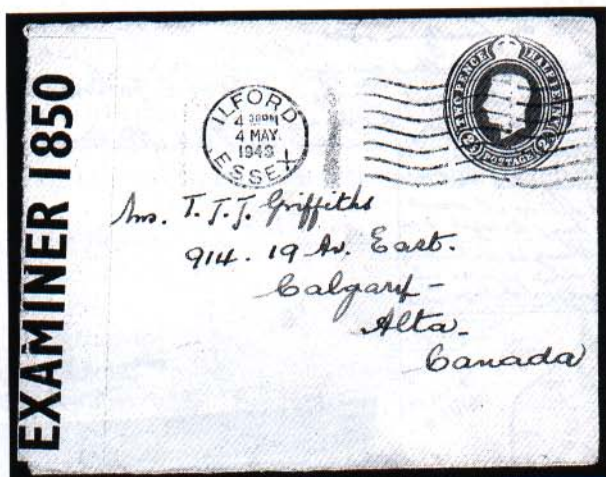 EXAMINER 1850
ILFORD
4 30PM
4 MAY.
1943
ESSEX
TWO PENCE HALFPENNY
2½ POSTAGE 2½
Mrs. T. J. J. Griffiths
914. 19 Av. East.
Calgary -
Alta.
Canada